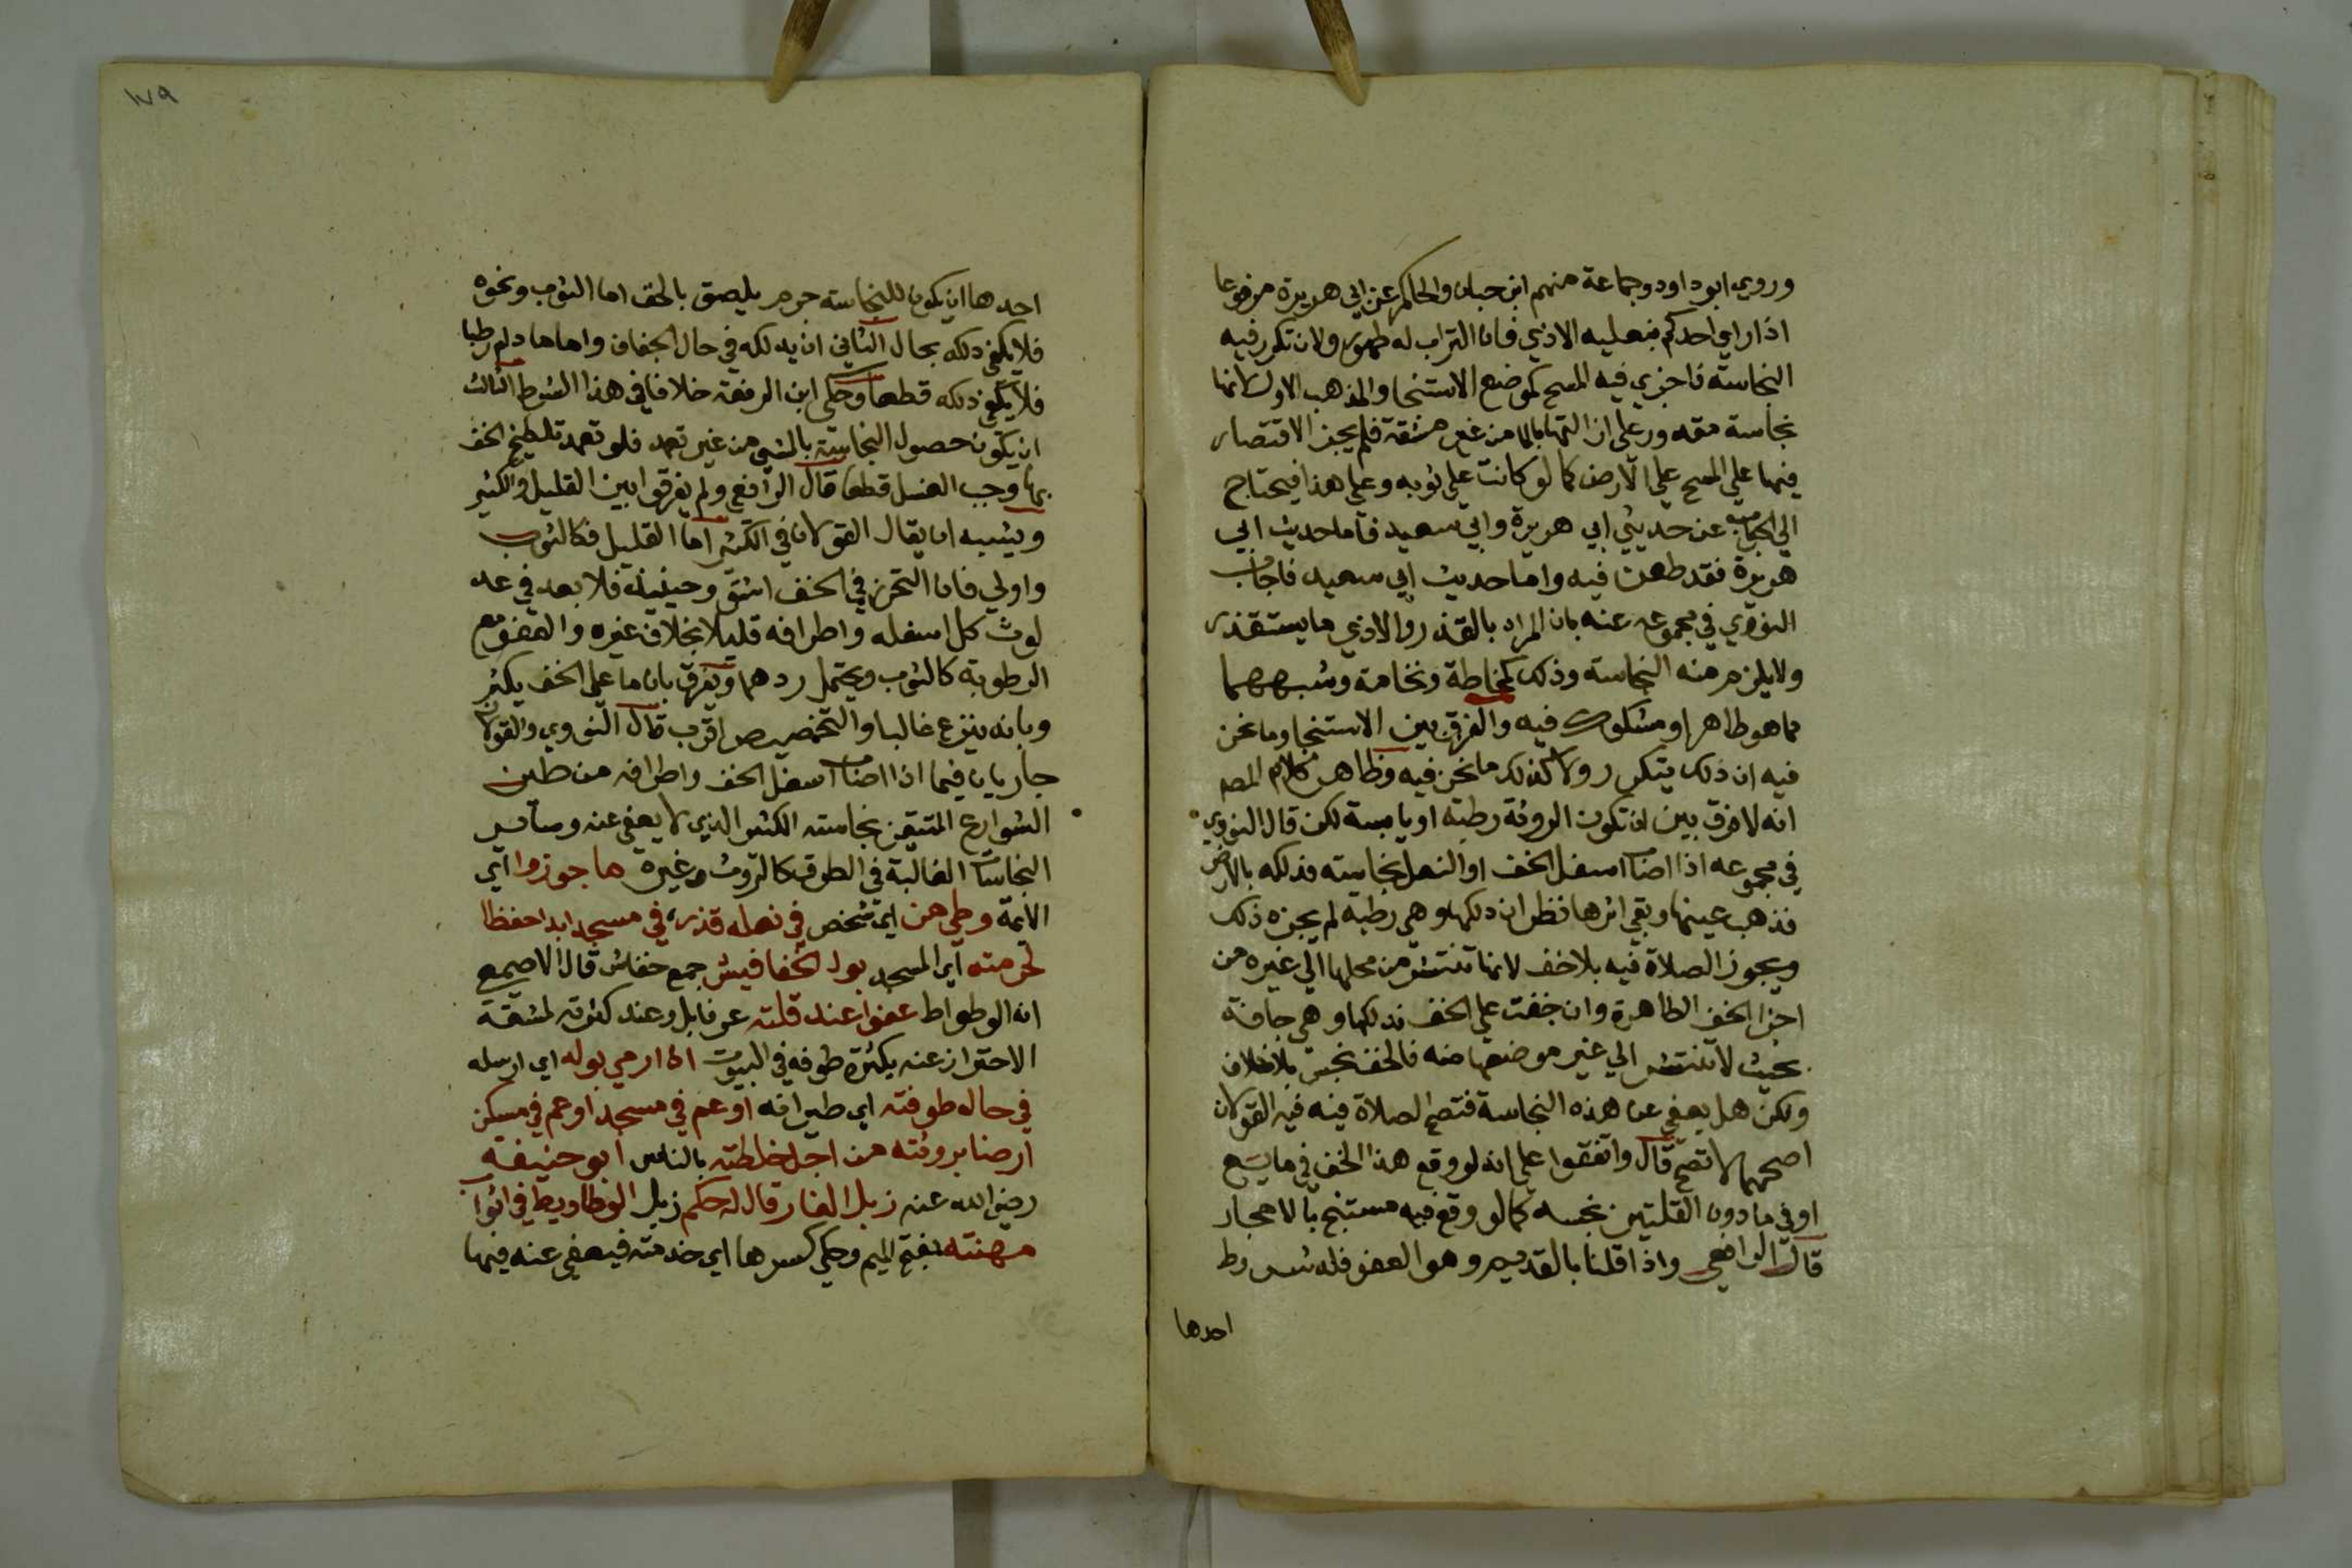 وروي ابو داود وجماعة منهم ابن حبان والحاكم عن ابي هريرة مرفوعا
اذا راي احدكم بنعليه الاذي فان التراب له طهور ولان تكرر فيه
النجاسة فاجزي فيه المسح كموضع الاستنجا والمذهب الاول لانها
نجاسة مقدور علي ازالتها بالما من غير مشقة فلم يجز الاقتصار
فيها علي المسح علي الارض كما لو كانت علي ثوبه وعلي هذا فيحتاج
الي الجواب عن حديثي ابي هريرة وابي سعيد فاما حديث ابي
هريرة فقد طعن فيه واما حديث ابي سعيد فاجاب
النووي في مجموعه عنه بان المراد بالقذر والاذي ما يستقذر
ولا يلزم منه النجاسة وذلك كمخاطة ونخامة وشبههما
مما هو طاهر او مشكوك فيه والفرق بين الاستنجا وما نحن
فيه ان ذلك يتكرر ولا كذلك ما نحن فيه وظاهر كلام المصـ
انه لا فرق بين ان تكون الروثة رطبة او يابسة لكن قال النووي
في مجموعه اذا اصاب اسفل الخف او النعل نجاسة فدلكه بالارض
فذهب عينها وبقي اثرها نظر ان دلكها وهي رطبة لم يجزه ذلك
ويجوز الصلاة فيه بلا خف لانها تنتشر من محلها الي غيره من
اجزا الخف الطاهرة وان جفت علي الخف فدلكها وهي جافة
بحيث لا تنتشر الي غير موضعها منه فالخف نجس بلا خلاف
ولكن هل يعفي عن هذه النجاسة فتصح الصلاة فيه فيه القولان
اصحهما لا تصح قال واتفقوا علي انه لو وقع هذا الخف في مايع
او في ما دون القلتين نجسه كما لو وقع فيه مستنج بالاحجار
قال الرافعي واذا قلنا بالقديم وهو العفو فله شروط
احدها
١٧٩
احدها ان يكون للنجاسة جرم يلصق بالخف اما البول ونحوه
فلا يكفي دلكه بحال الثاني ان يدلكه في حال الجفاف واما ما دام رطبا
فلا يكفي دلكه قطعا وحكي ابن الرفعة خلافا في هذا الشرط الثالث
ان يكون حصول النجاسة بالمشي من غير تعمد فلو تعمد تلطيخ الخف
بها وجب الغسل قطعا قال الرافعي ولم يفرقوا بين القليل والكثير
ويشبه ان يقال القولان في الكثير اما القليل فكالثوب
واولي فان التحرز في الخف اشق وحينيذ فلا بعد في عد
لوث كل اسفله واطرافه قليلا بخلاف غيره والعفو مع
الرطوبة كالثوب ويحتمل ردهما ويفرق بان ما علي الخف يكثر
وبانه ينزع غالبا والتخصيص اقرب قال النووي والقولان
جاريان فيما اذا اصاب اسفل الخف واطرافه من طين
الشوارع المتيقن نجاسته الكثير الذي لا يعفي عنه وساير
النجاسات الغالبة في الطرق كالروث وغيره ما جوزوا اي
الائمة وطي من اي شخص في نعله قذر في مسجد ابدا حفظا
لحرمته اي المسجد بول الخفافيش جمع خفاش قال الاصمعي
انه الوطواط عفوا عند قلته عرفا بل وعند كثرته لمشقة
الاحتراز عنه بكثرة طوفه في البيوت اذا ارمي بوله اي ارسله
في حال طوفته اي طيرانه او عم في مسجد او عم في مسكن
ارضا بروثته من اجل خلطته بالناس ابو حنيفة
رضي الله عنه زبل الفار قال له حكم زبل الوطاويط في اثواب
مهنته بفتح الميم وحكي كسرها اي خدمته فيعفي عنه فيها